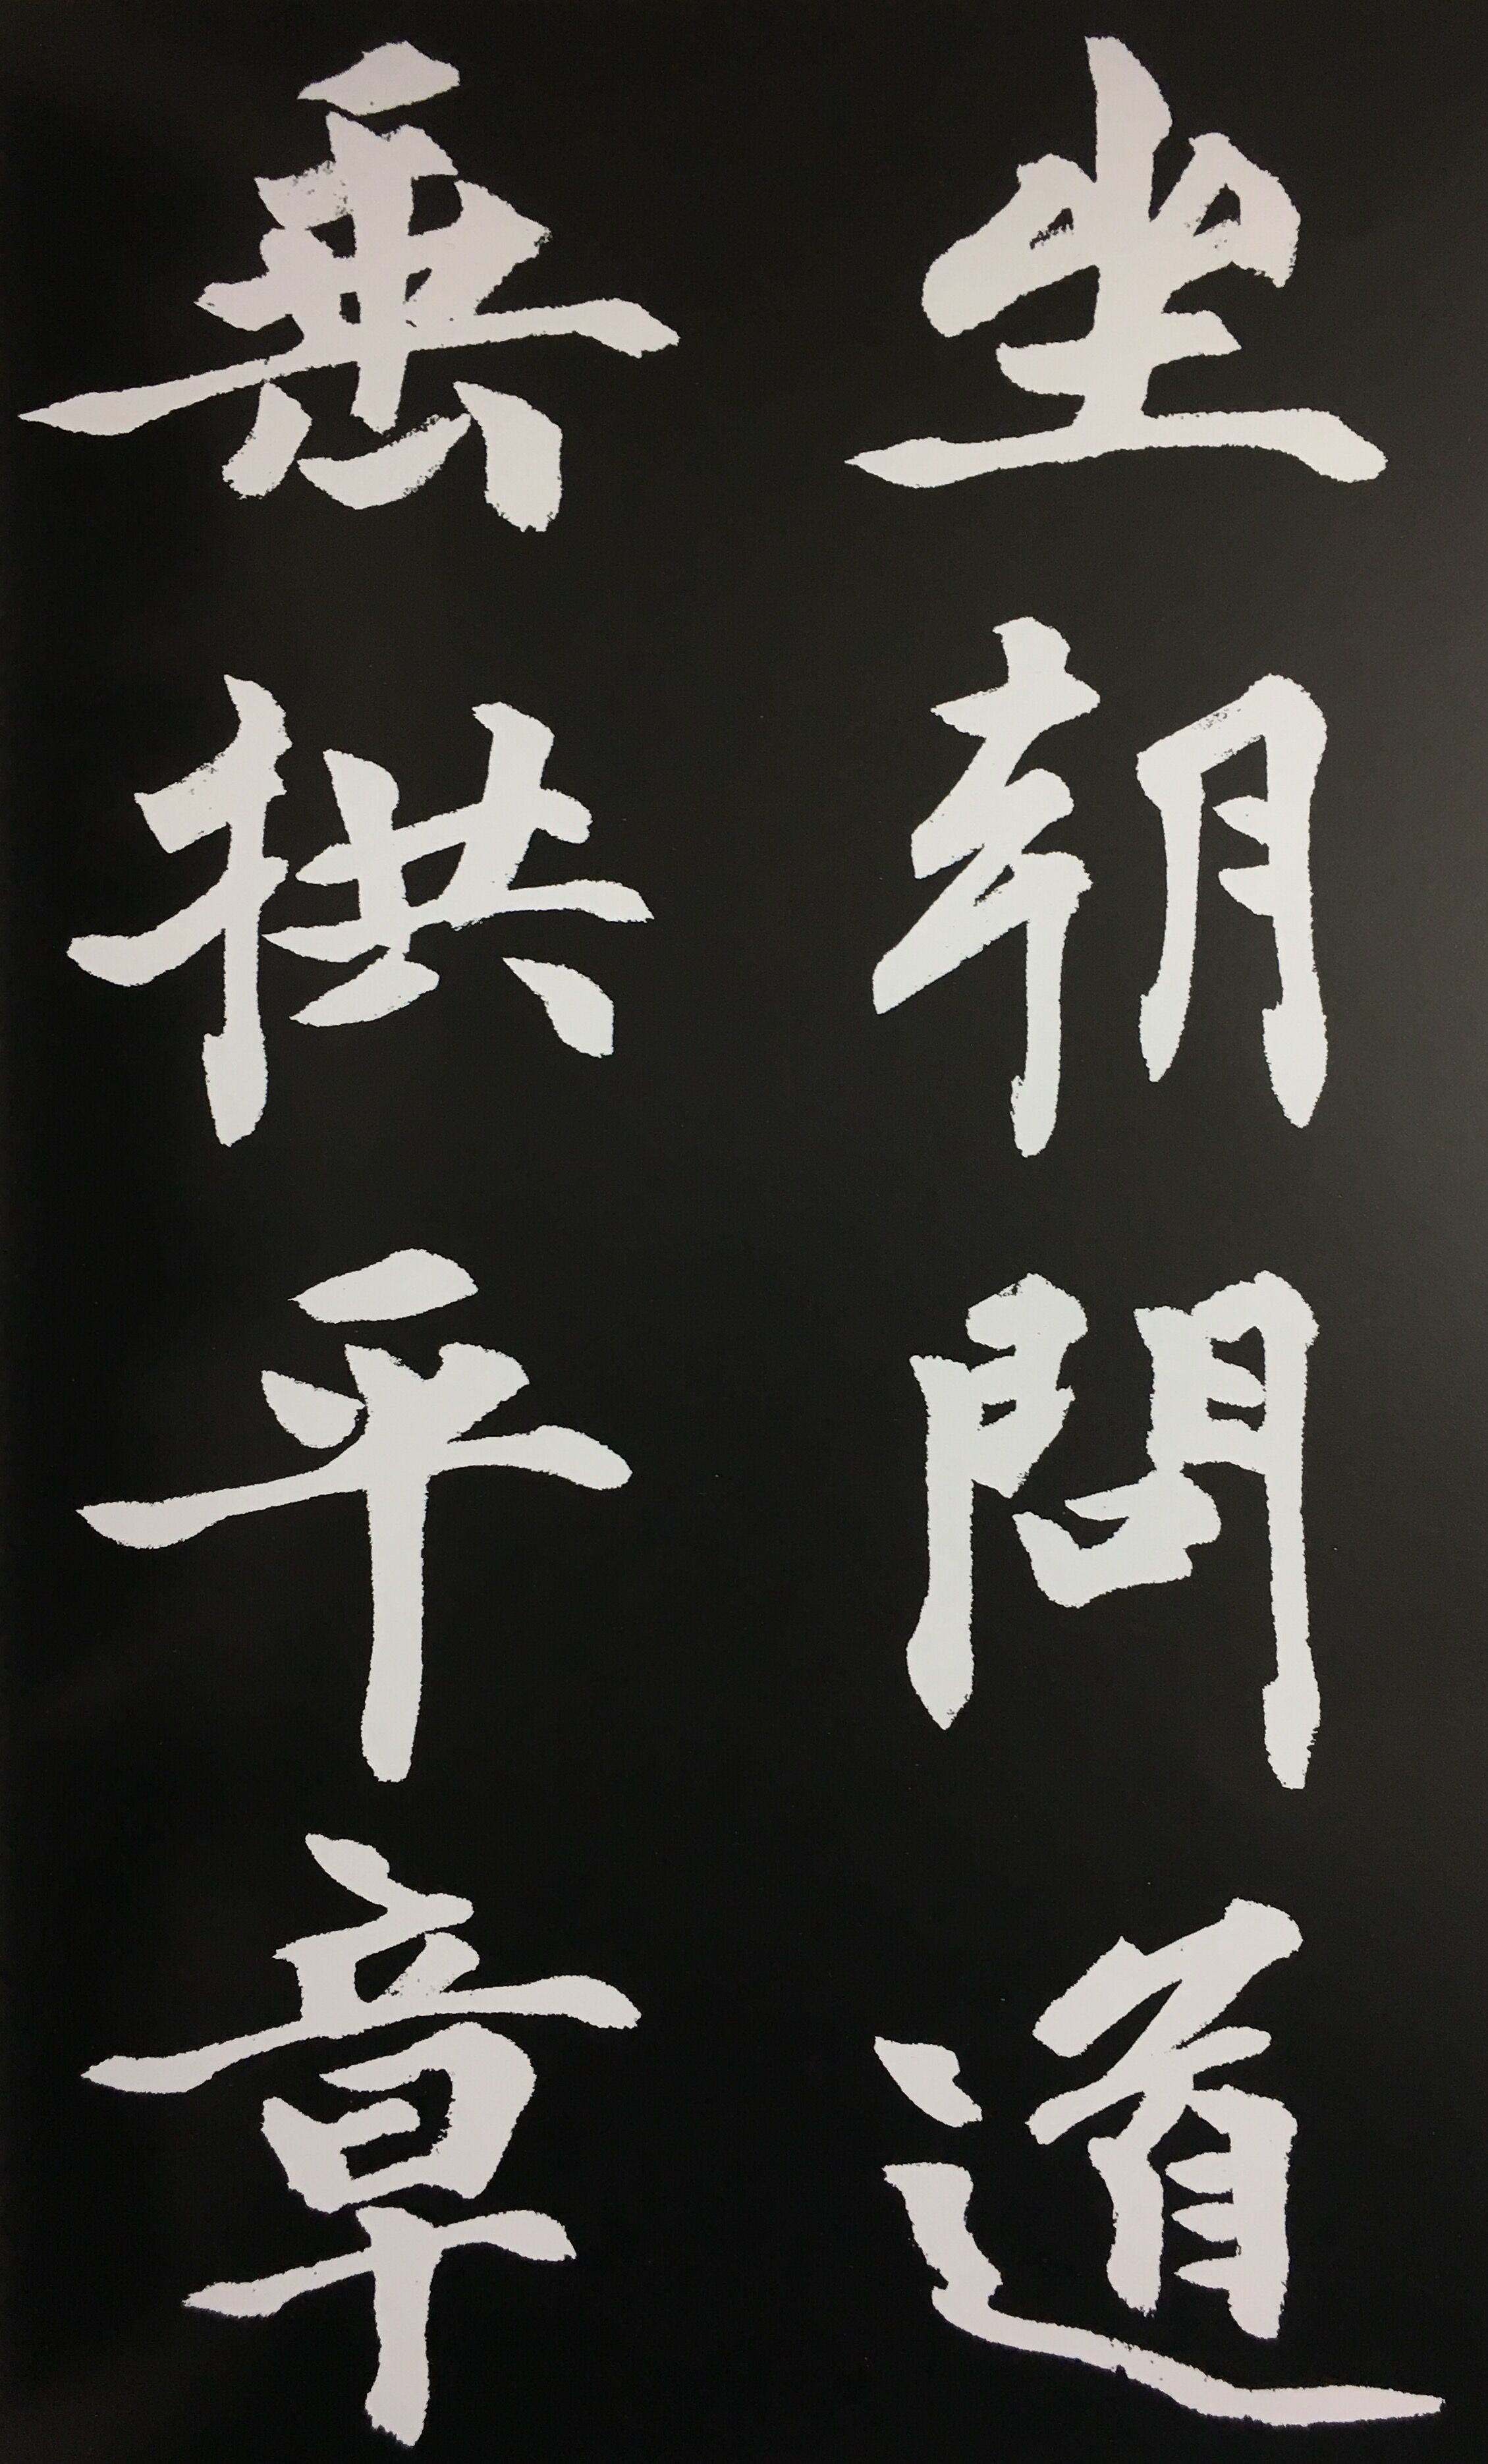 坐朝問道
垂拱平章